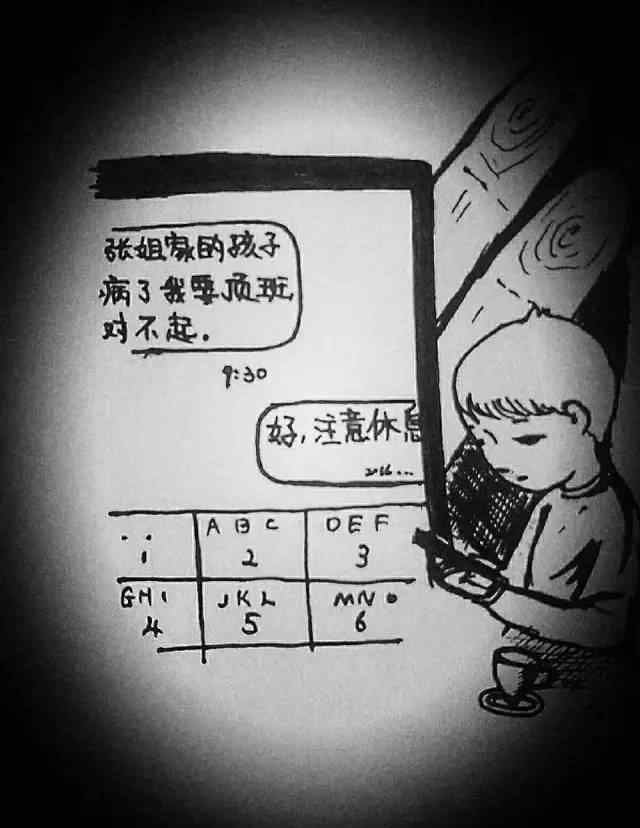 张姐家的孩子
病了我要顶班
对不起.
9:30
好,注意休息
2016...
ABC DEF
1 2 3
GHI JKL MNO
4 5 6